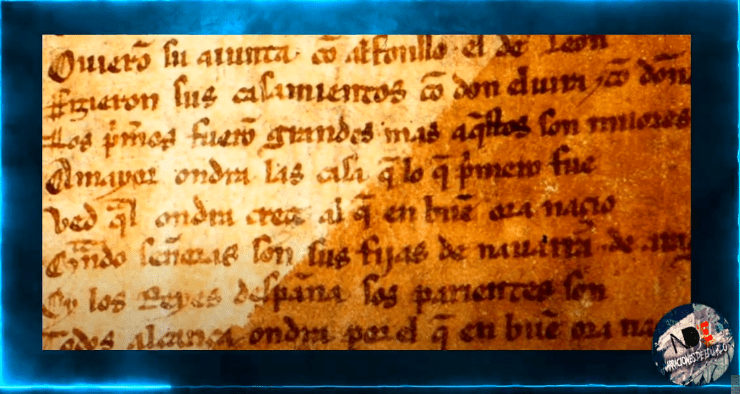 Ouierõ su aiunta cõ alfonsso el de Leon
ffizieron sus casamientos cõ don eluira ⁊ cõ doña
Los p̃meros fuerõ grandes mas aq̃stos son miiores
A mayor ondra las casa q̃ lo q̃ p̃mero fue
Ved q̃l ondra creçe al q̃ en buẽ ora naçio
Quãdo señoras son sus fijas de nauarra ⁊ de arag
Oy los Reyes despaña sos parientes son
Todos alcança ondra por el q̃ en buẽ ora na